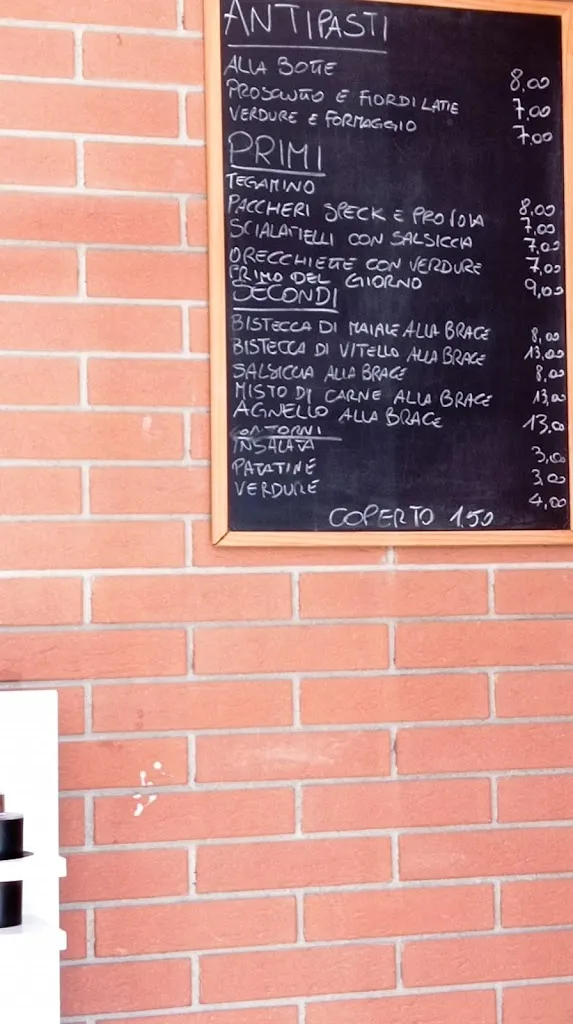 ANTIPASTI
ALLA BOTTE 8,00
PROSCIUTTO E FIORDILATTE 7,00
VERDURE E FORMAGGIO 7,00
PRIMI
TEGAMINO 8,00
PACCHERI SPECK E PROVOLA 7,00
SCIALATIELLI CON SALSICCIA 7,00
ORECCHIETTE CON VERDURE 7,00
PRIMO DEL GIORNO 9,00
SECONDI
BISTECCA DI MAIALE ALLA BRACE 8,00
BISTECCA DI VITELLO ALLA BRACE 13,00
SALSICCIA ALLA BRACE 8,00
MISTO DI CARNE ALLA BRACE 13,00
AGNELLO ALLA BRACE 13,00
CONTORNI
INSALATA 3,00
PATATINE 3,00
VERDURE 4,00
COPERTO 1,50